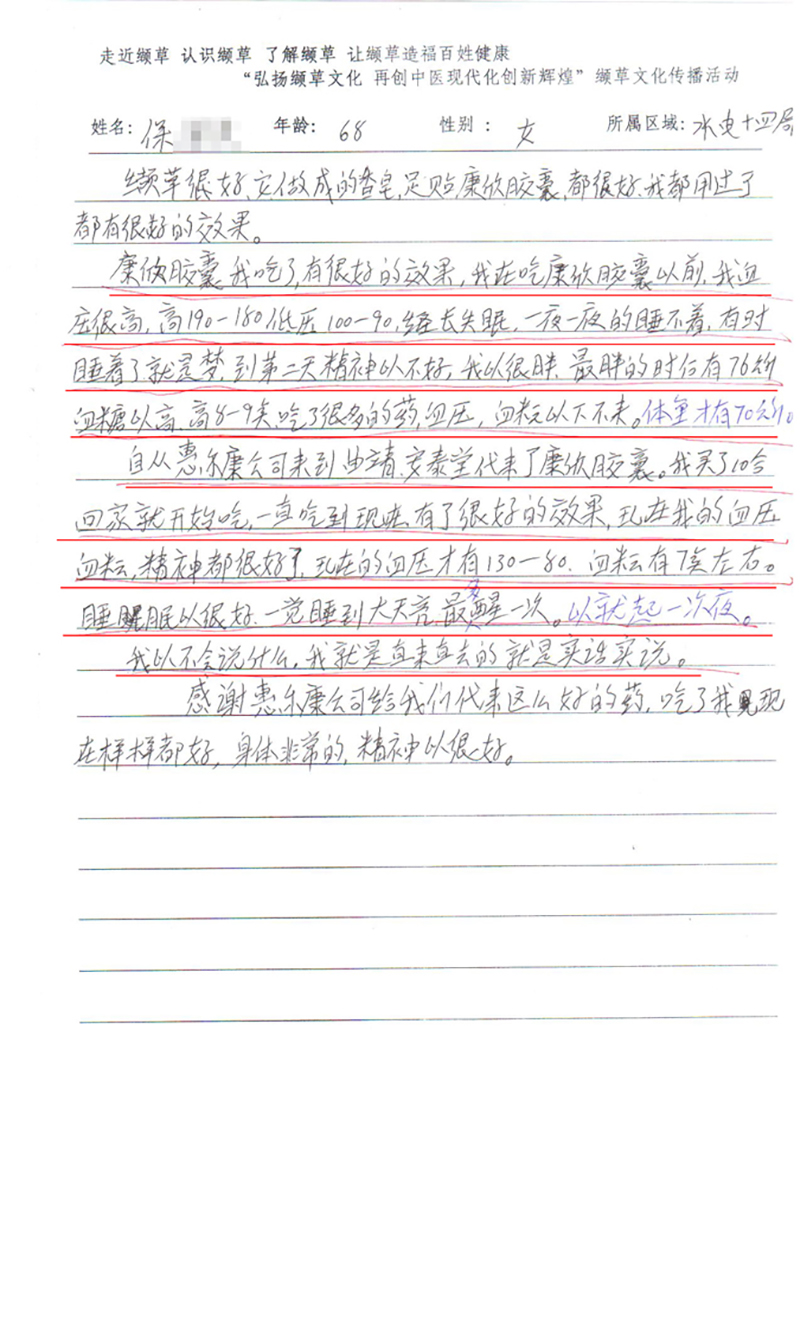 走近缬草 认识缬草 了解缬草 让缬草造福百姓健康
“弘扬缬草文化 再创中医现代化创新辉煌”缬草文化传播活动
姓名：保 年龄：68 性别：女 所属区域：水电十四局
缬草很好，它做成的香皂，足贴康欣胶囊，都很好，我都用过了
都有很好的效果。
康欣胶囊我吃了，有很好的效果，我在吃康欣胶囊以前，我血
压很高，高190-180低压100-90，经长失眠，一夜一夜的睡不着，有时
睡着了就是梦，到第二天精神以不好，我以很胖，最胖的时候有76公斤
血糖以高，高8-9类，吃了很多的药，血压，血糖以下不来。体重才有70公斤。
自从惠尔康公司来到曲靖，安泰堂代来了康欣胶囊。我买了10合
回家就开始吃，一直吃到现在，有了很好的效果，现在我的血压
血糖，精神都很好了，现在的血压才有130-80。血糖有7类左右。
睡眠以很好，一觉睡到大天亮，最多醒一次。以就起一次夜。
我以不会说什么，我就是直来直去的就是实话实说。
感谢惠尔康公司给我们代来这么好的药，吃了我现
在样样都好，身体非常的，精神以很好。